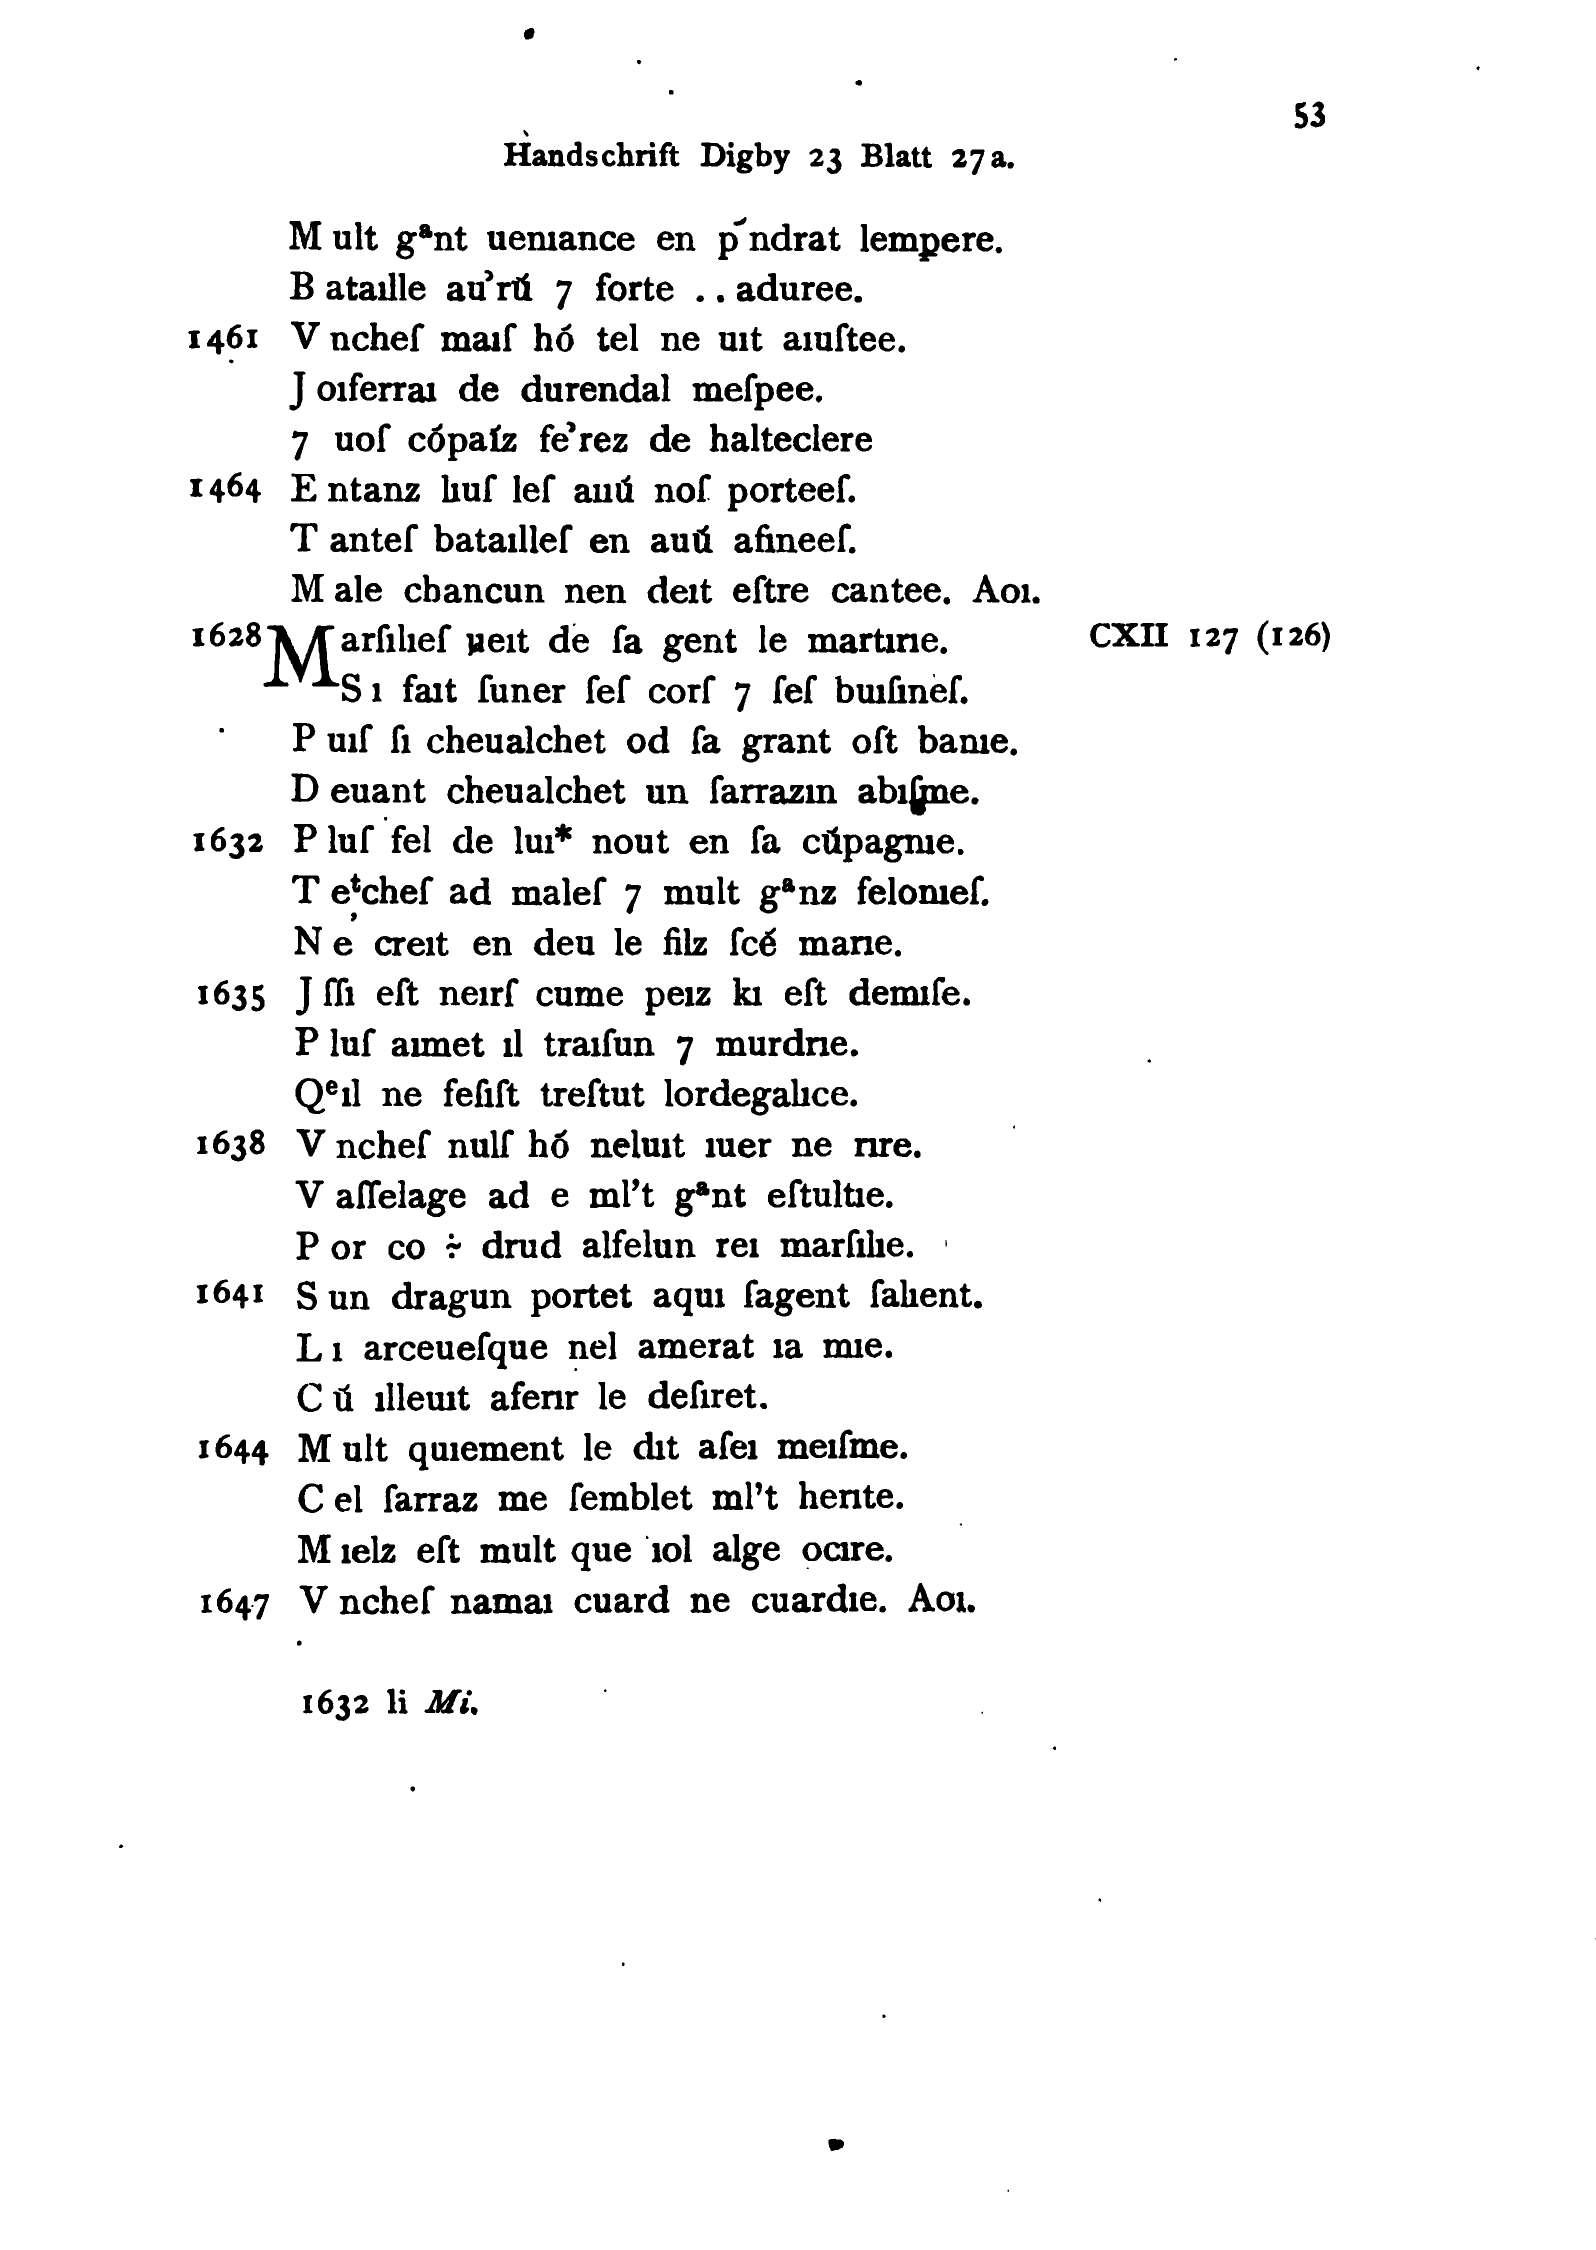 53
Handschrift Digby 23 Blatt 27a.
M ult gᵃnt uenıance en p´ndrat lempere.
B ataılle au’rű 7 forte . . aduree.
1461 V ncheſ maıſ hṍ tel ne uıt aıuſtee.
J oıferraı de durendal meſpee.
7 uoſ cṍpaíz fe’rez de halteclere
1464 E ntanz lıuſ leſ auű noſ porteeſ.
T anteſ bataılleſ en auű afineeſ.
M ale chancun nen deıt eſtre cantee. Aoı.
1628 Marſılıeſ ueıt de ſa gent le martırıe. CXII 127 (126)
S ı faıt ſuner ſeſ corſ 7 ſeſ buıſıneſ.
P uıſ ſı cheualchet od ſa grant oſt banıe.
D euant cheualchet un ſarrazın abıſme.
1632 P luſ fel de luı* nout en ſa cűpagnıe.
T eᵗcheſ ad maleſ 7 mult gᵃnz felonıeſ.
N e’ creıt en deu le filz ſcé marıe.
1635 J ſſı eſt neırſ cume peız kı eſt demıſe.
P luſ aımet ıl traıſun 7 murdrıe.
Qᵉıl ne feſıſt treſtut lordegalıce.
1638 V ncheſ nulſ hṍ neluıt ıuer ne rıre.
V aſſelage ad e ml’t gᵃnt eſtultıe.
P or co ÷ drud alfelun reı marſılıe.
1641 S un dragun portet aquı ſagent ſalıent.
L ı arceueſque nel amerat ıa mıe.
C ű ılleuıt aferır le deſıret.
1644 M ult quıement le dıt aſeı meıſme.
C el ſarraz me ſemblet ml’t herıte.
M ıelz eſt mult que ıol alge ocıre.
1647 V ncheſ namaı cuard ne cuardıe. Aoı.
1632 li Mi.